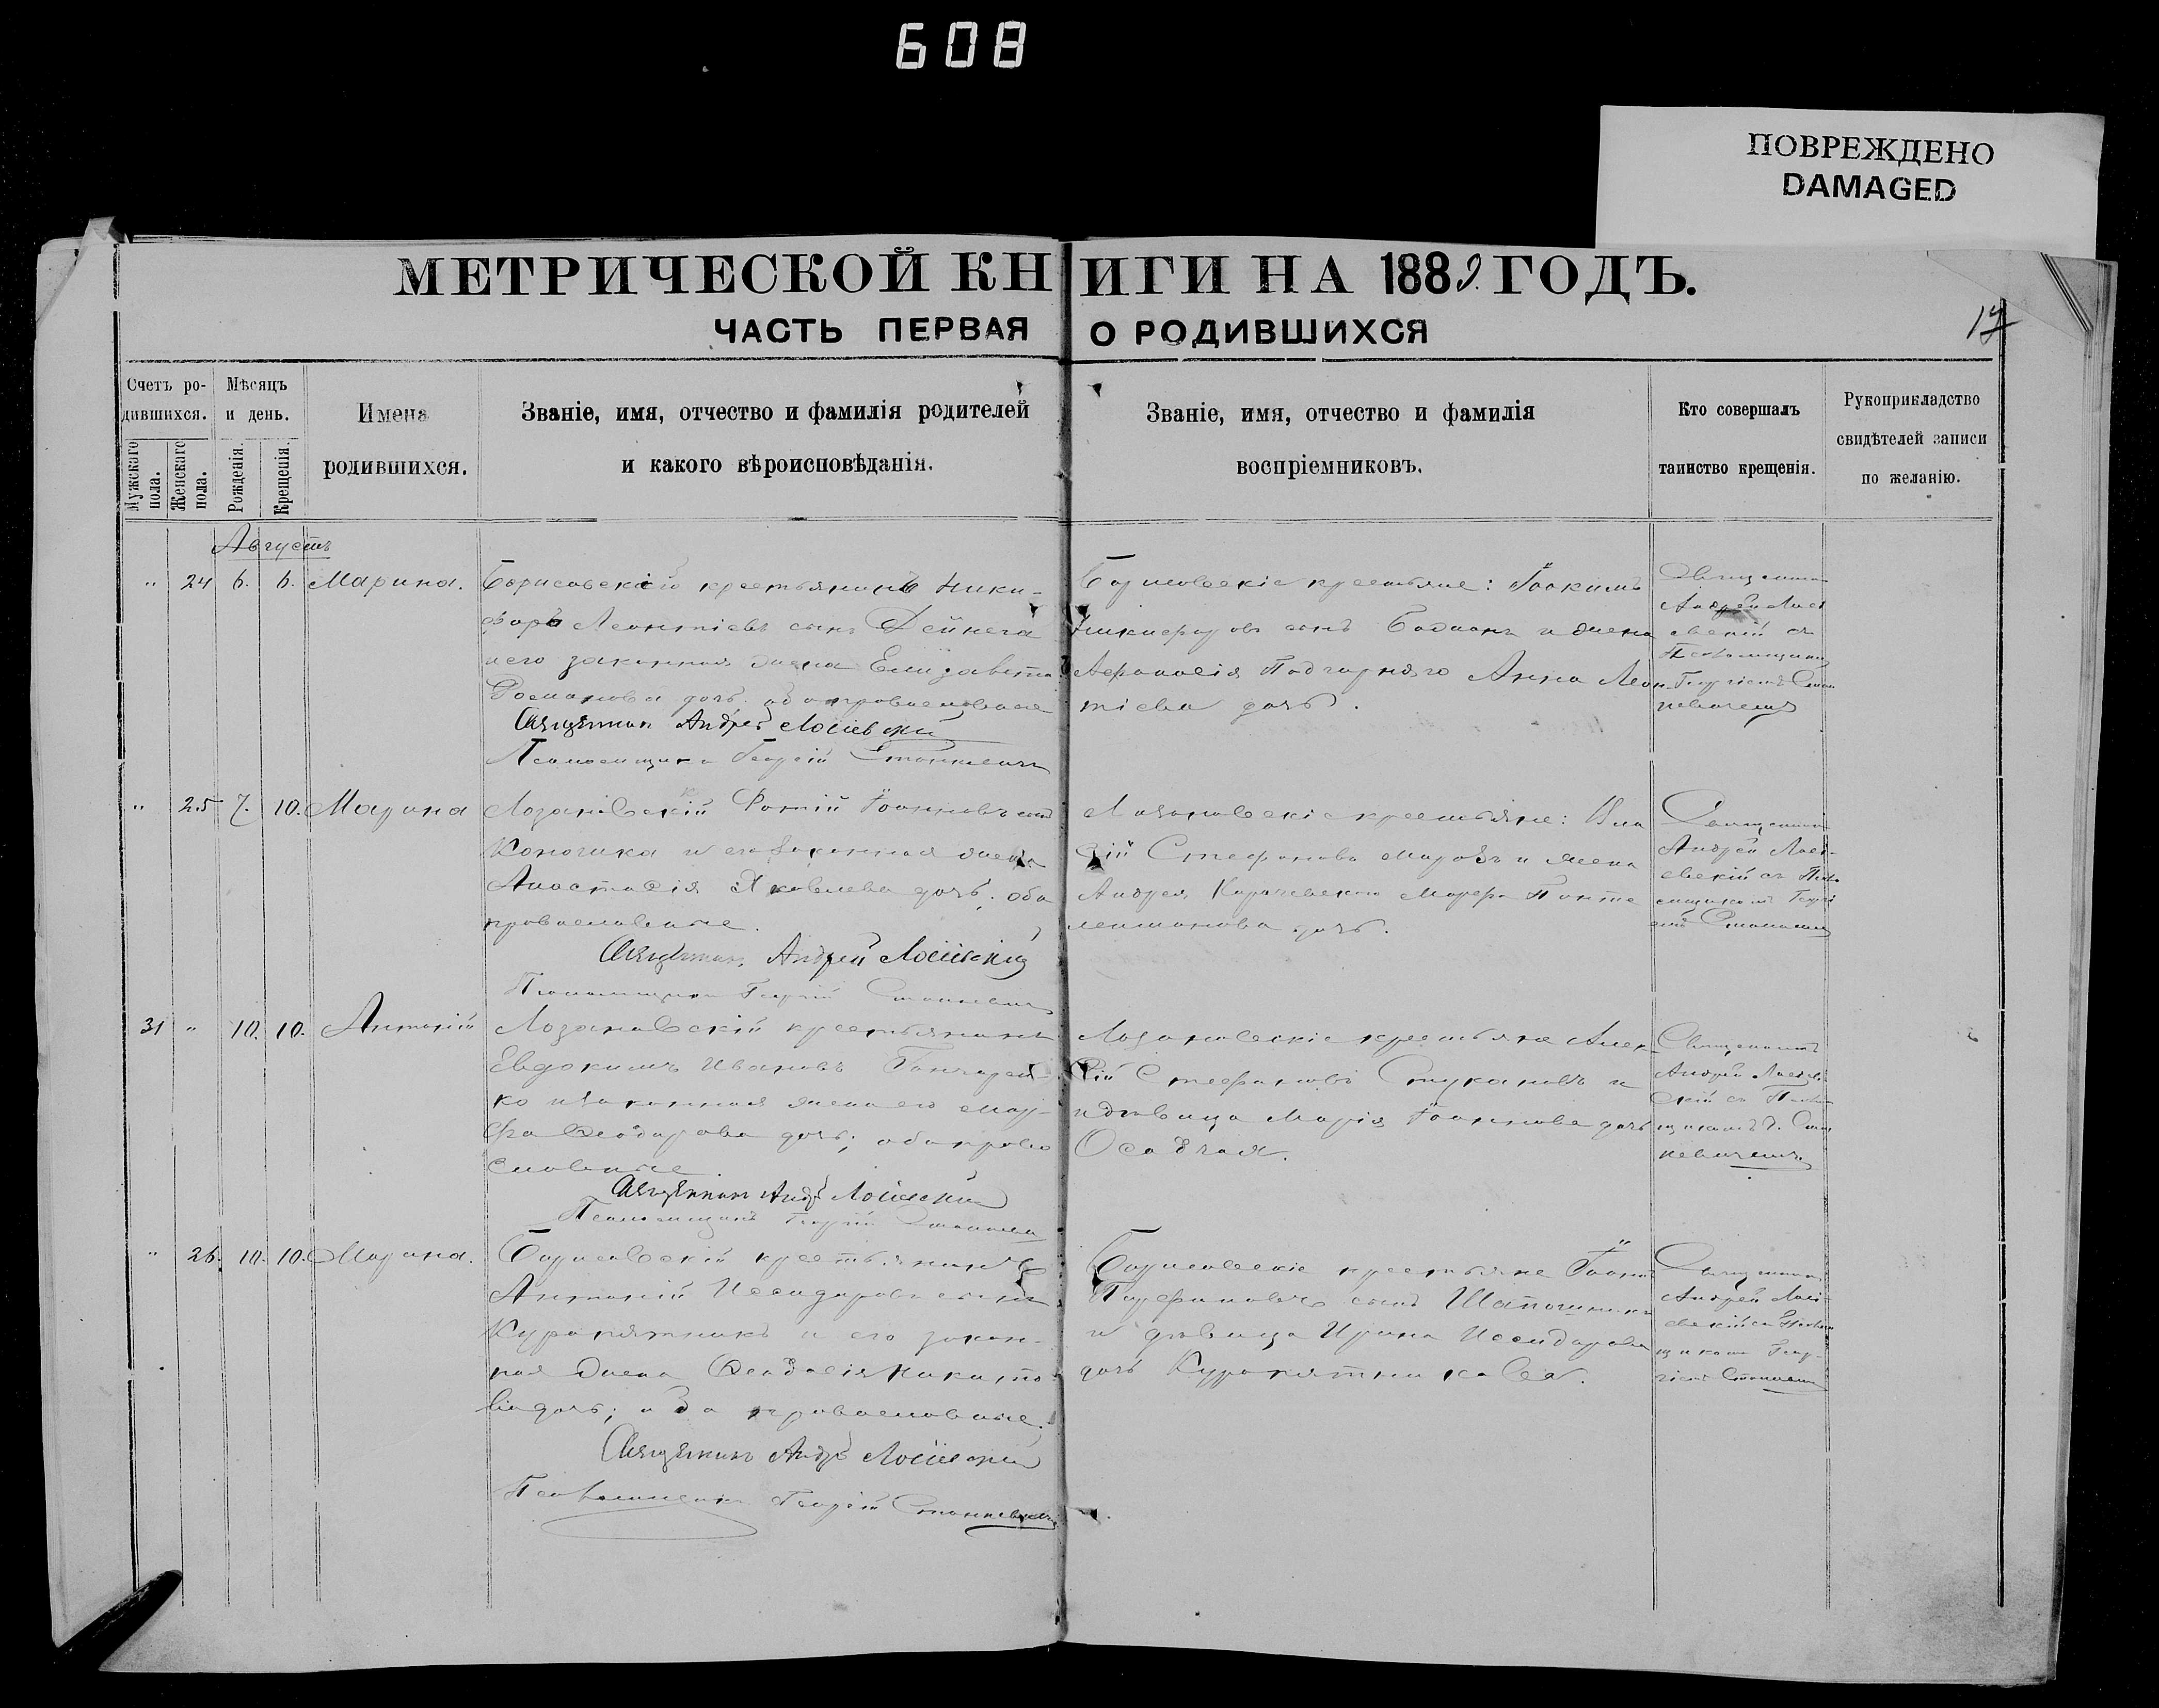 608
ПОВРЕЖДЕНО
DAMAGED
МЕТРИЧЕСКОЙ КНИГИ НА 1889 ГОДЪ.
ЧАСТЬ ПЕРВАЯ О РОДИВШИХСЯ
17
Счетъ ро-
дившихся.
Мужскаго пола.
Женскаго пола.
Мѣсяцъ
и день.
Рожденія.
Крещенія.
Имена
родившихся.
Званіе, имя, отчество и фамилія родителей
и какого вѣроисповѣданія.
Званіе, имя, отчество и фамилія
воспріемниковъ.
Кто совершалъ
таинство крещенія.
Рукоприкладство
свидѣтелей записи
по желанію.
Августъ
" 24 6. 6. Марина.
Борисовскій крестьянинъ Ники-
форъ Леонтіевъ сынъ Дейнега
и его законная жена Елизавета
Романова дочь, оба православные
Священникъ Андрей
Псаломщикъ Георгій Станкевичъ
Борисовскіе крестьяне: Іоакимъ
Никифоровъ сынъ и жена
Афанасія Анна Леон-
тіева дочь.
Священникъ
Андрей
съ
Псаломщикомъ
Георгіемъ Стан-
кевичемъ
" 25 7. 10. Марина
Лозановскій Фотій Іоанновъ сынъ
Коночика и его законная жена
Анастасія Яковлева дочь; оба
православные.
Священникъ Андрей
Псаломщикъ Георгій Станкевичъ
Лозановскіе крестьяне:
Стефановъ и жена
Андрея Марфа Панте-
леимонова дочь.
Священникъ
Андрей
съ Псало-
мщикомъ Георгі-
емъ Станкевичемъ
31 " 10. 10. Антоній
Лозановскій крестьянинъ
Евдокимъ Ивановъ Гончарен-
ко и законная жена его Мар-
фа Ѳеодорова дочь; оба право-
славные.
Священникъ Андрей
Псаломщикъ Георгій Станкевичъ
Лозановскіе крестьяне Алек-
сій Стефановъ и
дѣвица Марія Іоаннова дочь
Осадчая.
Священникъ
Андрей
съ Псалом-
щикомъ Г. Стан-
кевичемъ
" 26. 10. 10. Марина.
Борисовскій крестьянинъ
Антоній Исидоровъ сынъ
Куропятникъ и его закон-
ная жена Ѳеодосія
дочь; оба православные.
Священникъ Андрей
Псаломщикъ Георгій Станкевичъ
Борисовскіе крестьяне Іоаннъ
сынъ
и дѣвица Ирина Исидорова
дочь Куропятникова.
Священникъ
Андрей
съ Псалом-
щикомъ Геор-
гіемъ Станкевичемъ